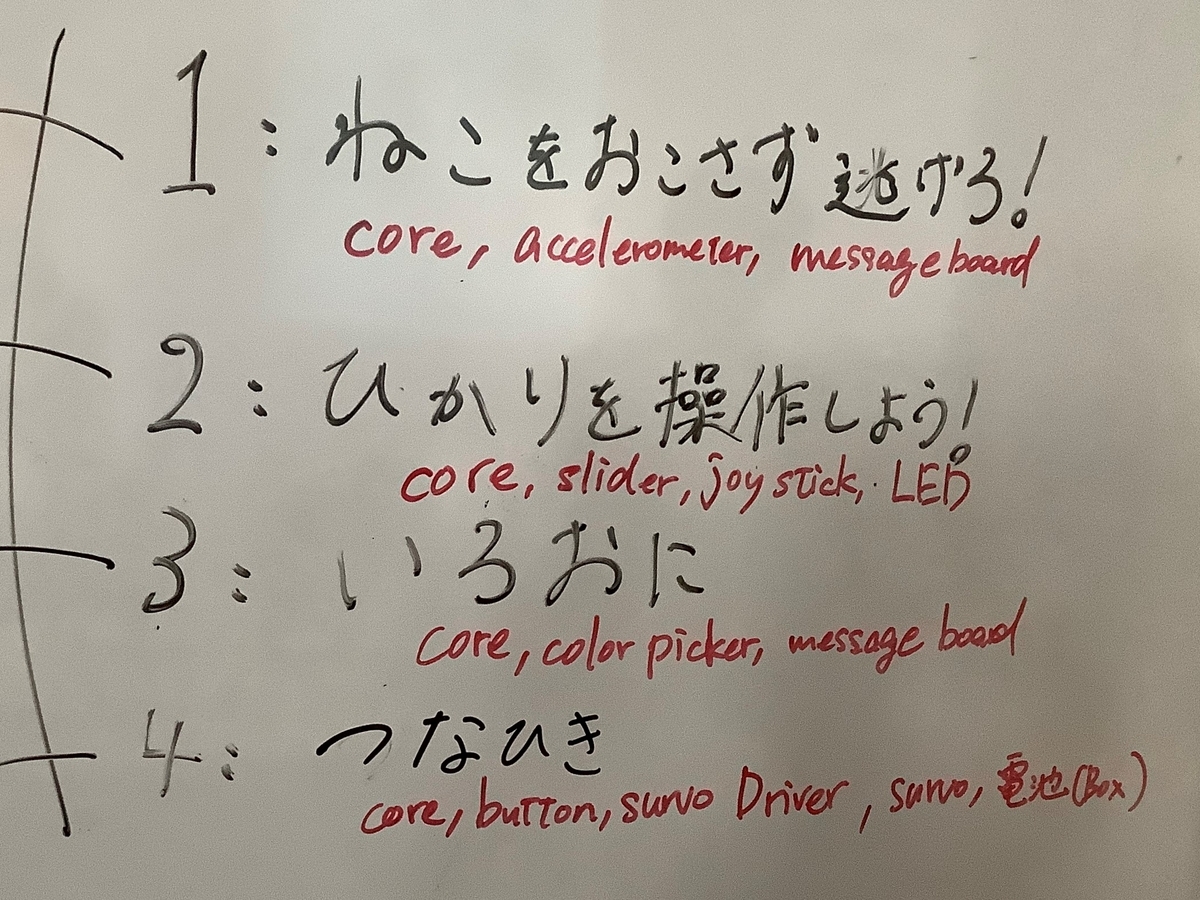 1:ねこをおこさず逃げろ!
core, accelerometer, message board
2:ひかりを操作しよう!
core, slider, joystick, LED
3:いろおに
core, color picker, message board
4:つなひき
core, button, survo Driver, survo, 電池(Box)